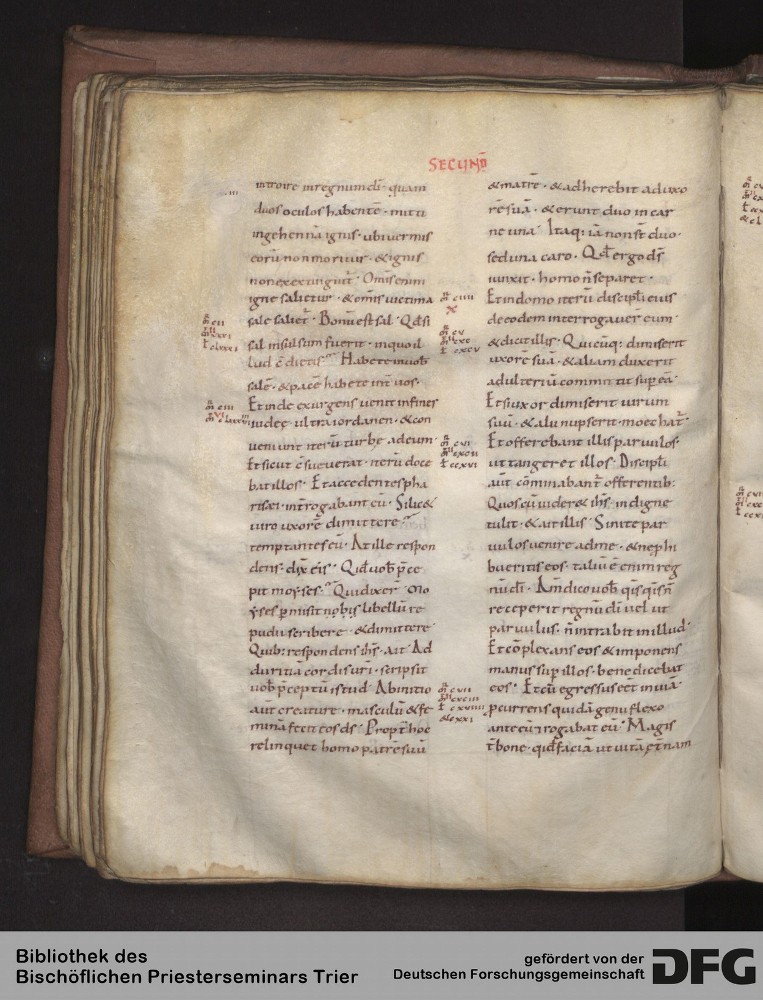 SECUND̄
introire in regnum dī · quam
duos oculos habentē · mitti
in gehennā ignis · ubi uermis
eorū non moritur · & ignis
non extinguit̄ · Omīs enim
igne salietur · & om̄is uictima
sale saliet̄ · Bonū est sal · Qd̄ si
sal insulsum fuerit · in quo il
lud c̄dietis · Habete in uob̄
salē · & pacē habete int̄ uos ·
Et inde exurgens uenit in fines
iudeę · ultra iordanen · & con
ueniunt iterū turbę ad eum ·
Et sicut c̄sueuerat · iterū doce
bat illos · Et accedentes pha
risei · int̄rogabant eū · Si lic&
uiro uxorē dimittere
temptantes eū · At ille respon
dens · dix̄ eis · Quid uob̄ p̄ce
pit moyses · Qui dixer̄ · Mo
yses p̄misit nobis libellū re
pudii scribere · & dimittere
Quib: respondens ihs̄ · ait · Ad
duritiā cordis ur̄i · scripsit
uob̄ p̄ceptū istud · Ab initio
aūt creaturę · masculū & fe
minā fecit eos ds̄ · Propt̄ hoc
relinquet homo patrē suū
& matrē · & adherebit ad uxo
rē suā · & erunt duo in car
ne una · Itaq: iā non st̄ duo ·
sed una caro · Qd̄ ergo ds̄
iunxit · homo n̄ separet ·
Et in domo iterū discipl̄i eius
de eodem interrogauer̄ eum ·
& dicit illis · Quicūq: dimiserit
uxorē suā · & aliam duxerit
adulteriū committit sup eā
Et si uxor dimiserit uirum
suū · & alii nupserit · moechat̄
Et offerebant illi paruulos ·
ut tangeret illos · Discipl̄i
aūt cōminabant̄ offerentib:
Quos cū uider& ihs̄ · indigne
tulit · & ait illis · Sinite par
uulos uenire ad me · & ne phi
bueritis eos · taliū ē enim reg
nū dī · Am̄ dico uob̄ quisquis n̄
receperit regnū dī uel ut
paruulus · n̄ intrabit in illud ·
Et cōplexans eos & imponens
manus sup illos · benedicebat
eos · Et cū egressus eēt in uiā ·
pcurrens quidā genu flexo
ante eū rogabat eū · Magis
t̄ bone · quid faciā ut uitā et̄nam
Bibliothek des
Bischöflichen Priesterseminars Trier
gefördert von der
Deutschen Forschungsgemeinschaft
DFG